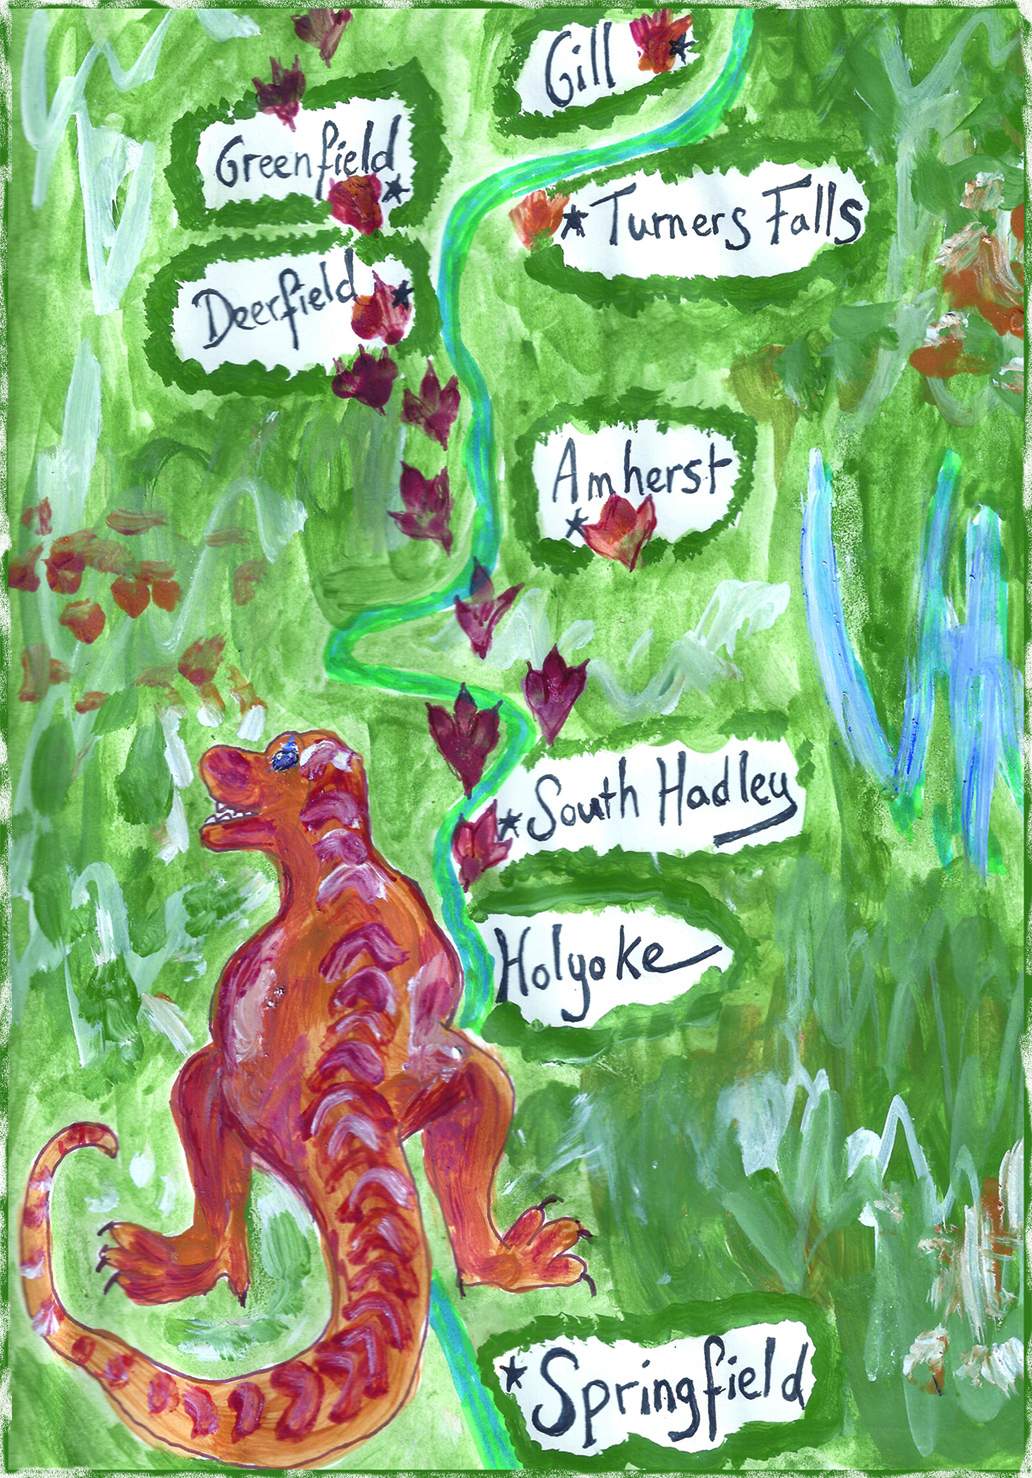 Gill
Greenfield
Turners Falls
Deerfield
Amherst
South Hadley
Holyoke
Springfield